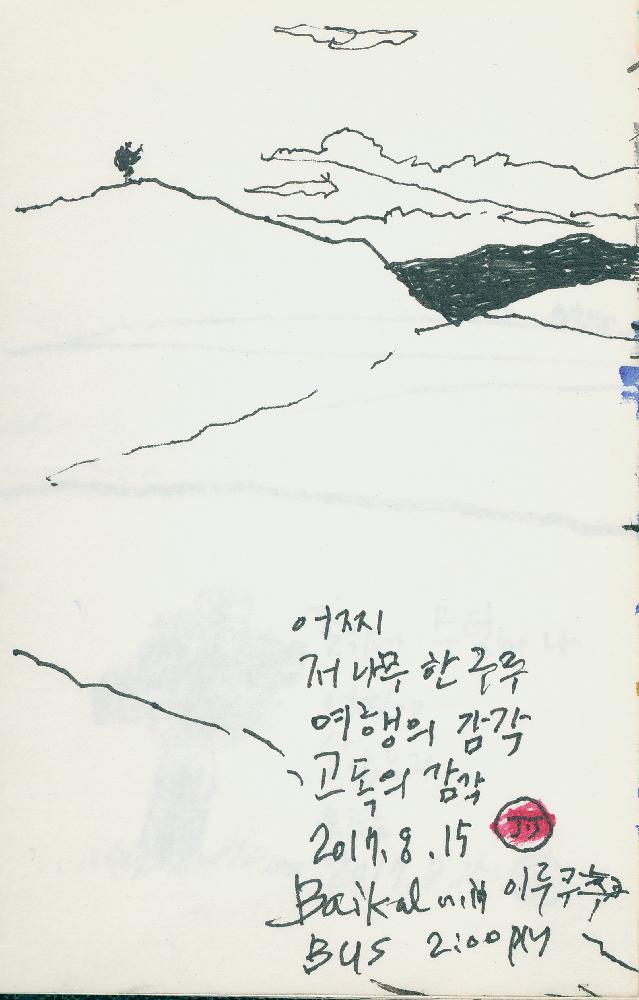 어찌
저 나무 한 그루
여행의 감각
고독의 감각
2017.8.15
JJ
Baikal에서 이루쿠츠크
BUS 2:00 PM